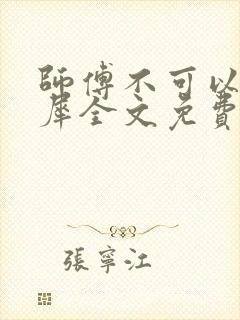 師傅不可以
犀全文免費
張寧江